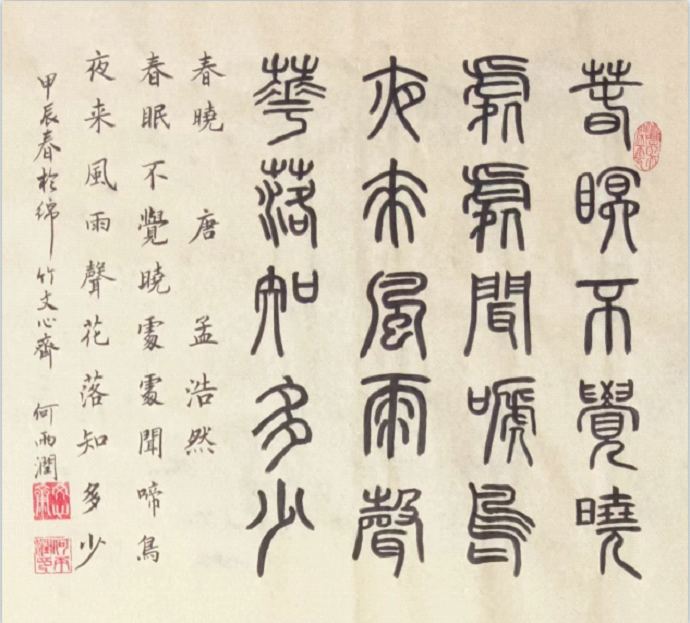 春眠不覺曉
處處聞嗁鳥
夜來風雨聲
華落知多少
春曉 唐 孟浩然
春眠不覺曉處處聞啼鳥
夜来風雨聲花落知多少
甲辰春於綿竹文心齋 何雨潤